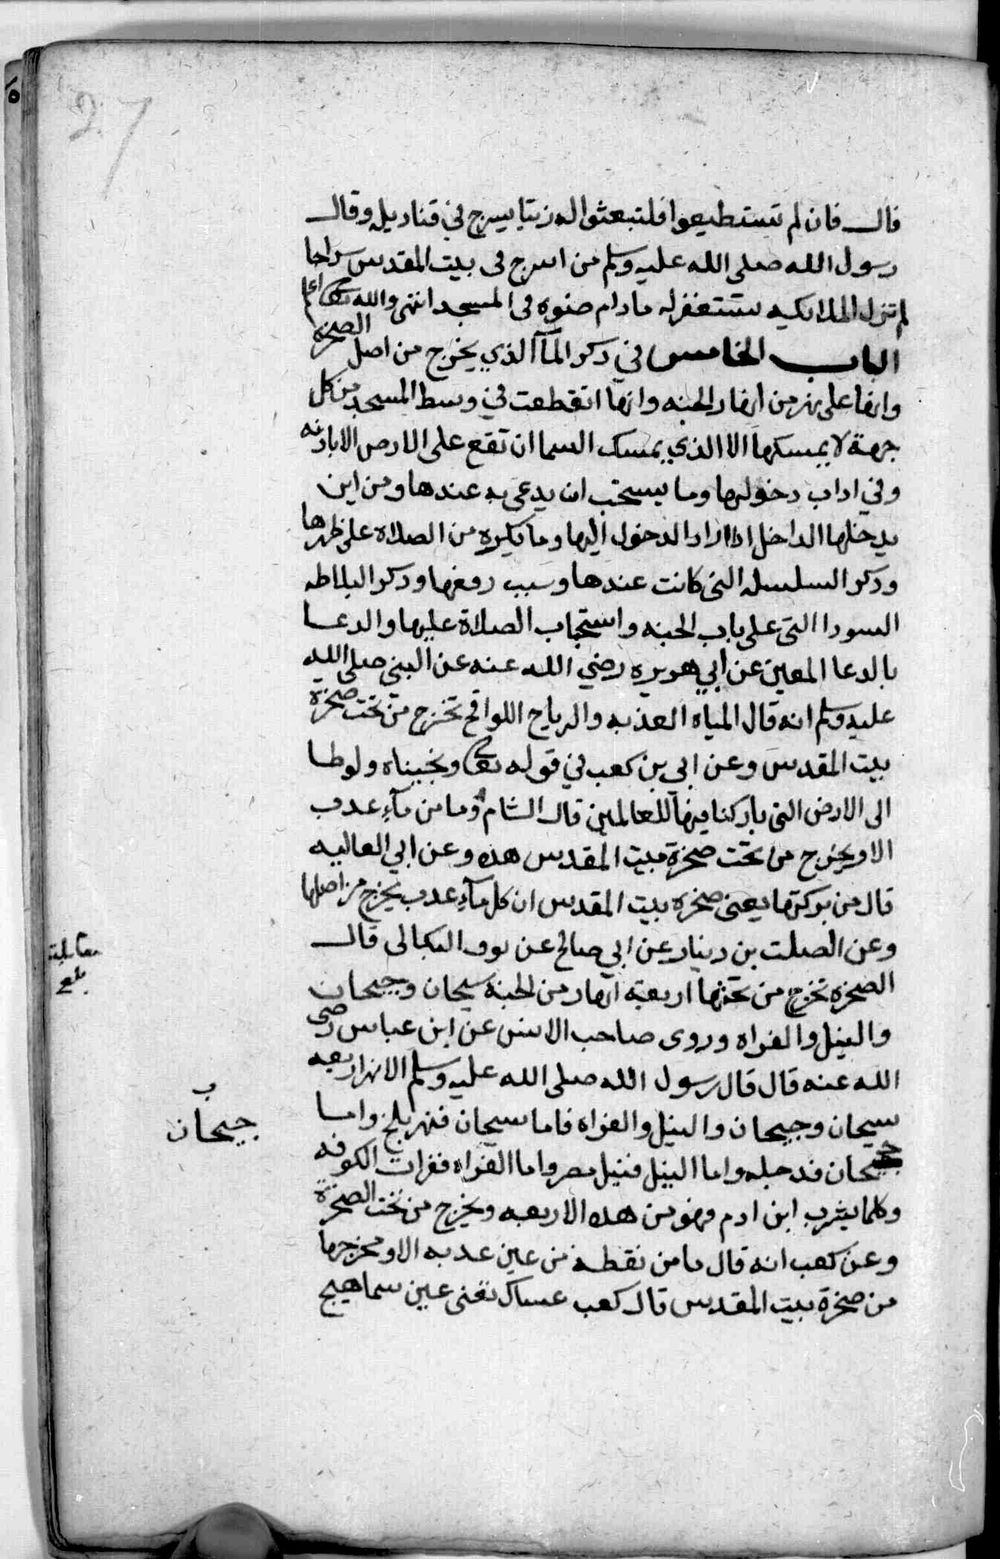 27
قال فان لم تستطيعوا فلتبعثوا له زيتا يسرج في قناديله وقال
رسول الله صلى الله عليه وسلم من اسرج في بيت المقدس سراجا
لم تزل الملايكه تستغفر له مادام ضوه في المسجد انتهى والله تعالى اعلم
الباب الخامس في ذكر المآ الذي يخرج من اصل الصخرة
وانها على نهر من انهار الجنه وانها انقطعت في وسط المسجد من كل
جهة لا يمسكها الا الذي يمسك السما ان تقع على الارض الا باذنه
وفي اداب دخولها وما يستحب ان يدعى به عندها ومن اين
يدخلها الداخل اذا اراد الدخول اليها وما يكره من الصلاة على ظهرها
وذكر السلسله التي كانت عندها وسبب رفعها وذكر البلاطه
السودا التي على باب الجنه واستحباب الصلاة عليها والدعا
بالدعا المعين عن ابي هريره رضي الله عنه عن النبي صلى الله
عليه وسلم انه قال المياه العذبه والرياح اللواقح تخرج من تحت صخرة
بيت المقدس وعن ابي بن كعب في قوله تعالى ونجيناه ولوطا
الى الارض التي باركنا فيها للعالمين قال الشام وما من مآء عذب
الا ويخرج من تحت صخرة بيت المقدس هذه وعن ابي العاليه
قال من بركتها يعني صخرة بيت المقدس ان كل مآء عذب يخرج من اصلها
وعن الصلت بن دينار عن ابي صالح عن نوف البكالى قال
الصخره تخرج من تحتها اربعة انهار من الجنة سيحان وجيحان
والنيل والفراه وروى صاحب الانس عن ابن عباس رضي
الله عنه قال قال رسول الله صلى الله عليه وسلم الانهار اربعه
سيحان وجيحان والنيل والفراه فاما سيحان فنهر بلخ واما
جيحان فدجله واما النيل فنيل مصر واما الفراه ففرات الكوفه
وكلما يشرب ابن ادم فهو من هذه الاربعه ويخرج من تحت الصخرة
وعن كعب انه قال ما من نقطة من عين عذبه الا ومخرجها
من صخرة بيت المقدس قال كعب عساك تعنى عين سماهيج
مقابلة
بلغ
ب
جيحان